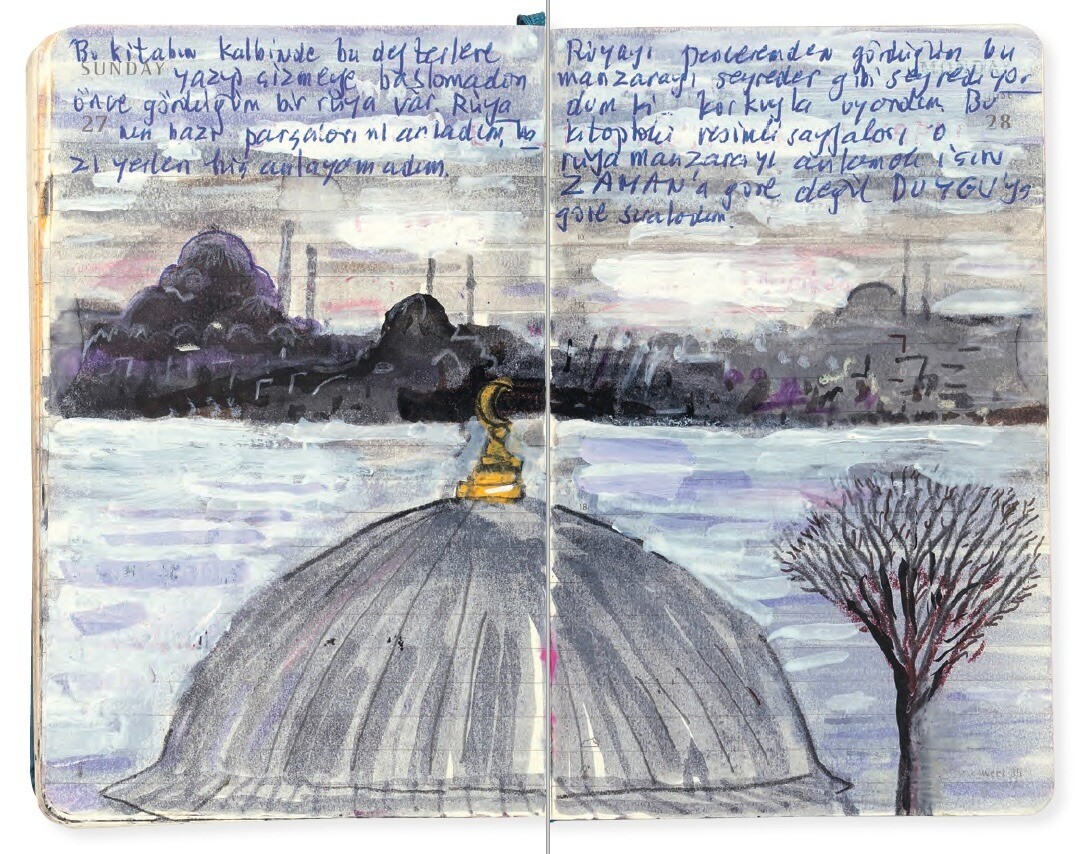 Bu kitabın kalbinde bu defterlere
SUNDAY
yazıp çizmeye başlamadan
önce gördüğüm bir rüya var. Rüya
27
nın bazı parçalarını anladım, ba
zı yerleri hiç anlayamadım.
Rüyayı penceremden gördüğüm bu
manzarayı seyreder gibi seyrediyor
dum ki korkuyla uyandım. Bu
28
kitaptaki resimli sayfaları o
rüya manzarayı anlamak için
ZAMAN'a göre değil DUYGU'ya
göre sıraladım.
18
Week 35